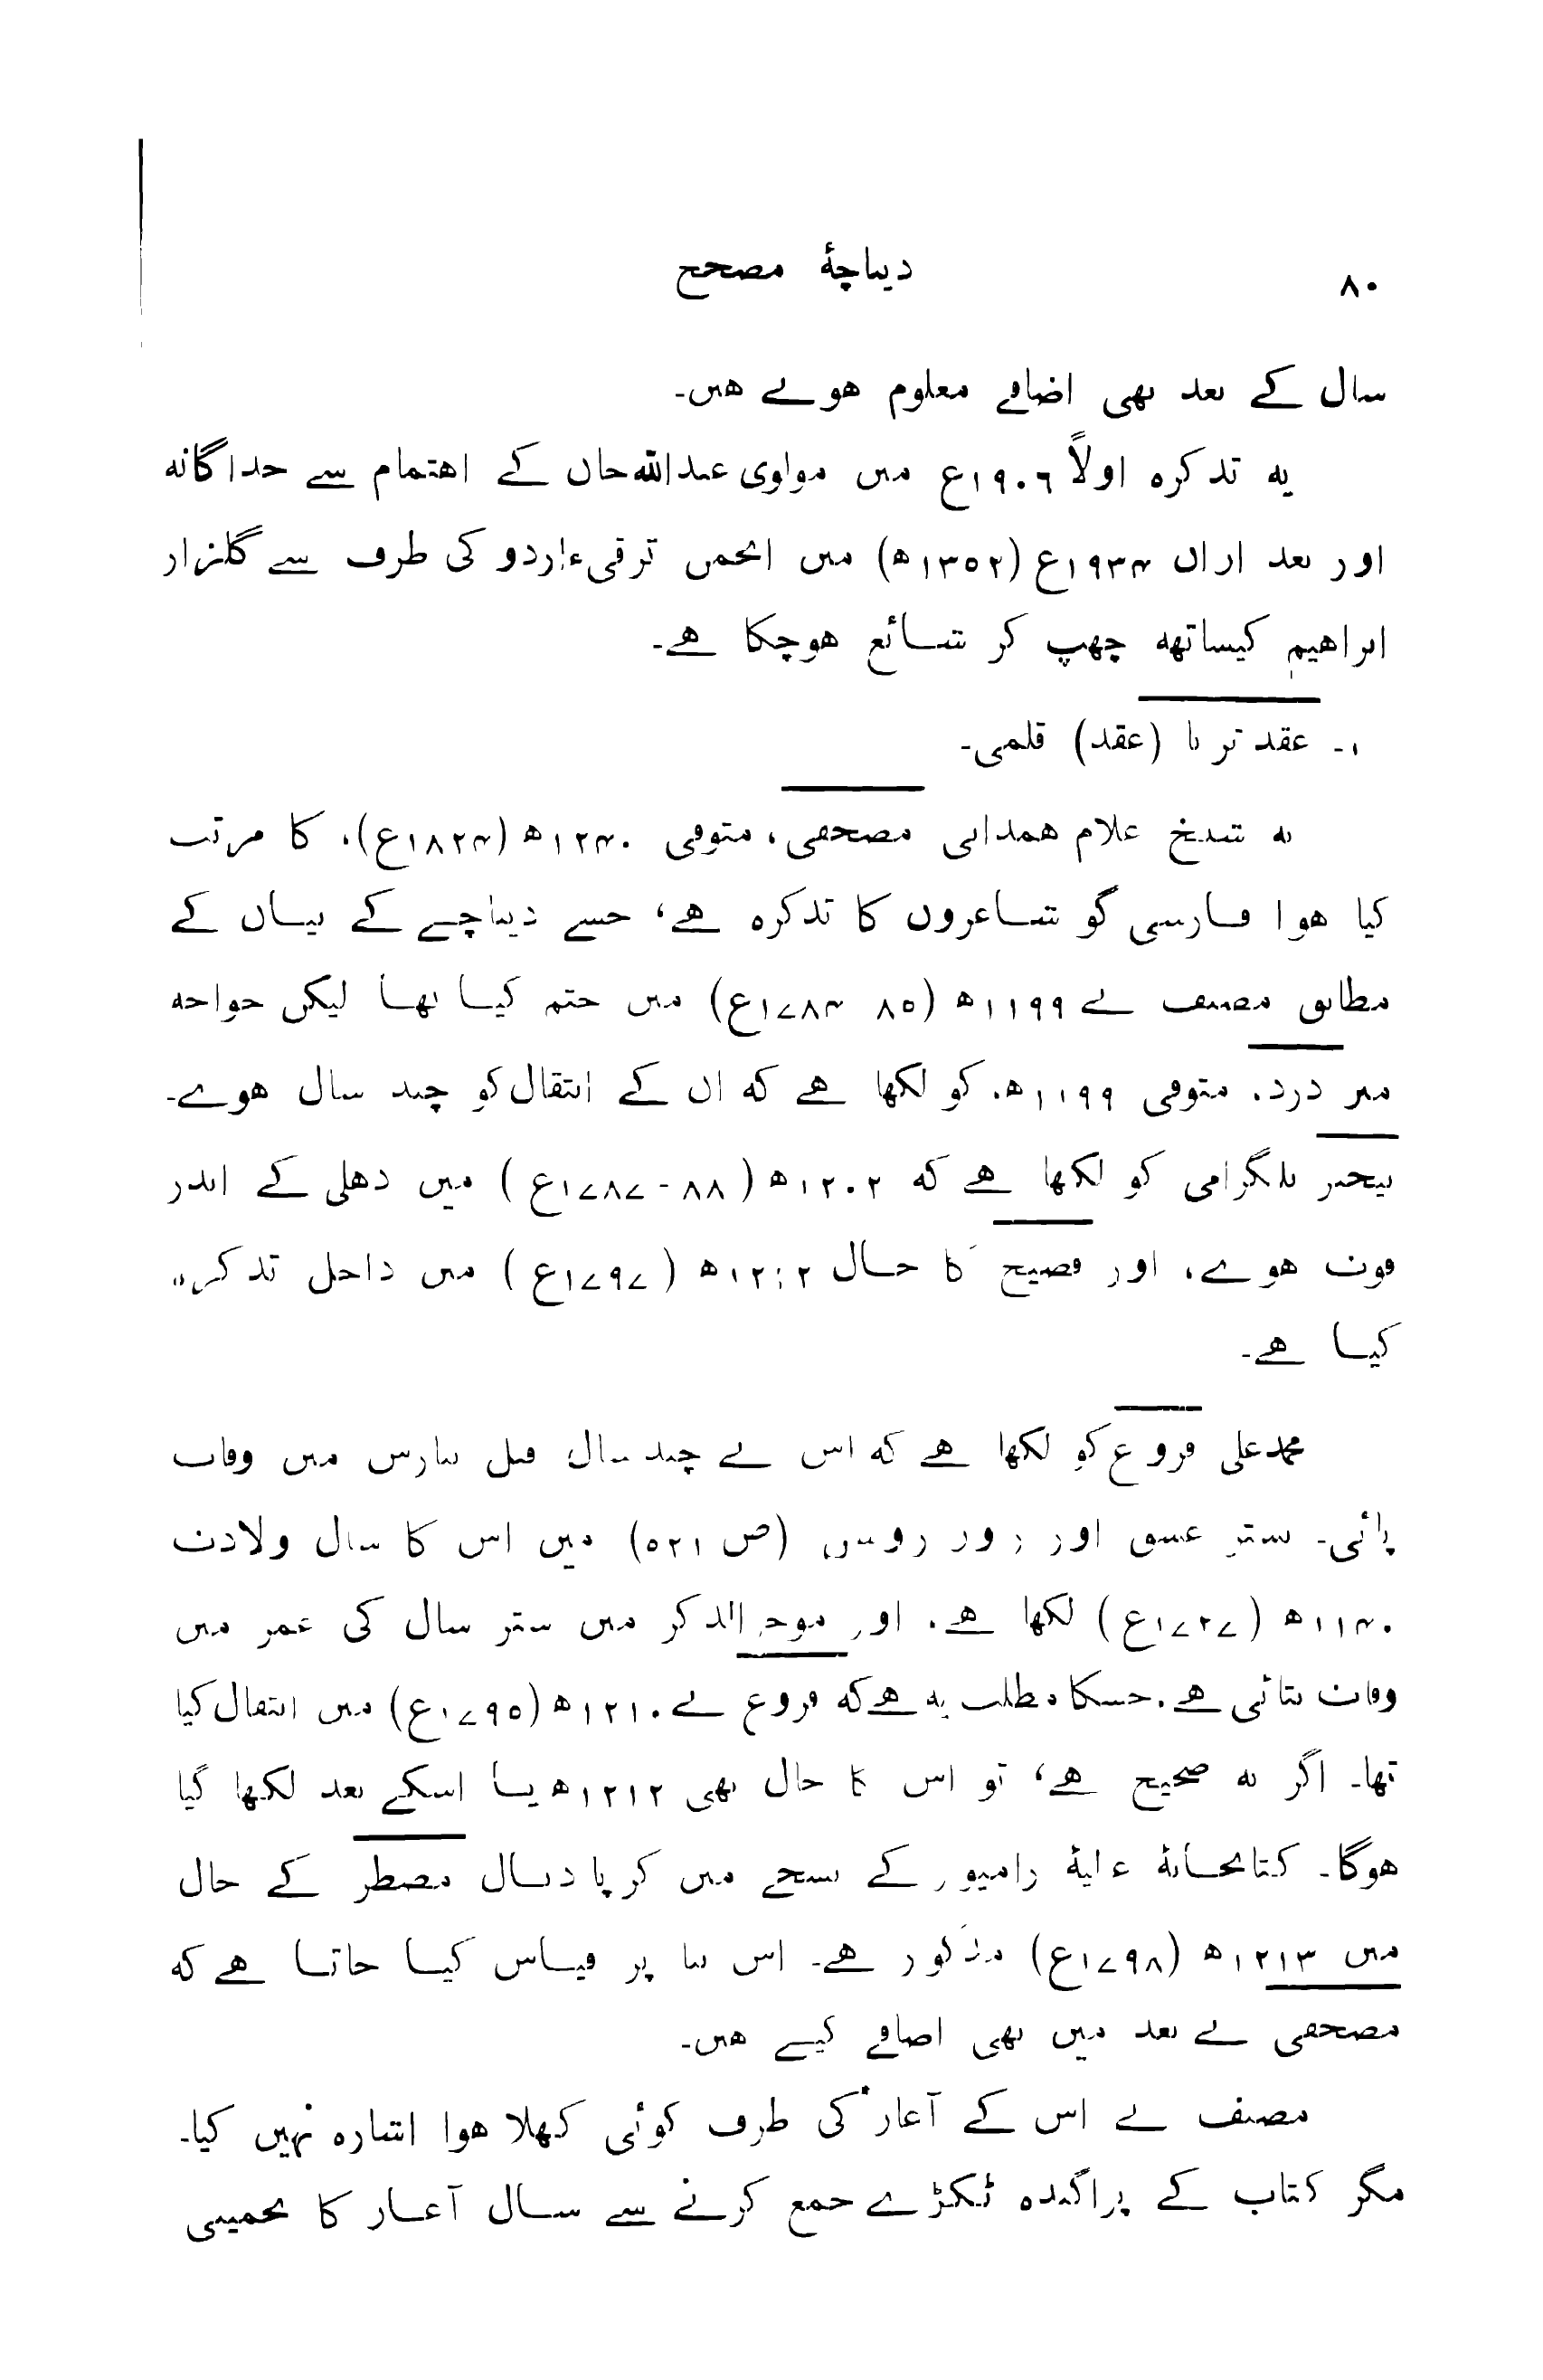 ۸۰ دیباچۂ مصحح
سال کے بعد بھی اضافے معلوم هوتے هیں۔
یه تذکره اولاً ۱۹۰٦ع میں مولوی عبدالله خان کے اهتمام سے جداگانه
اور بعد ازاں ۱۹۳۴ع (۱۳۵۲ھ) میں انجمن ترقیء اردو کی طرف سے گلزار
ابراهیم کیساتھه چھپ کر شائع هوچکا هے۔
۱۔ عقد ثریا (عقد) قلمی۔
یه شیخ غلام همدانی مصحفی، متوفی ۱۲۴۰ھ (۱۸۲۴ع)، کا مرتب
کیا هوا فارسی گو شاعروں کا تذکره هے، جسے دیباچے کے بیان کے
مطابق مصنف نے ۱۱۹۹ھ (۸۵ ۱۷۸۴ع) میں ختم کیا تھا لیکن خواجه
میر درد، متوفی ۱۱۹۹ھ، کو لکھا هے که ان کے انتقال کو چند سال هوے۔
بیخبر بلگرامی کو لکھا هے که ۱۲۰۲ھ (۸۸-۱۷۸۷ع) میں دهلی کے اندر
فوت هوے، اور فصیح کا حال ۱۲۱۲ھ (۱۷۹۷ع) میں داخل تذکره
کیا هے۔
محمد علی فروغ کو لکھا هے که اس نے چند سال قبل بنارس میں وفات
پائی۔ نشتر عشق اور روز روشن (ص ۵۲۱) میں اس کا سال ولادت
۱۱۴۰ھ (۱۷۲۷ع) لکھا هے، اور موخر الذکر میں ستر سال کی عمر میں
وفات بتائی هے، جسکا مطلب یه هے که فروغ نے ۱۲۱۰ھ (۱۷۹۵ع) میں انتقال کیا
تھا۔ اگر یه صحیح هے، تو اس کا حال بھی ۱۲۱۲ھ یا اسکے بعد لکھا گیا
هوگا۔ کتابخانۂ عالیۂ رامپور کے نسخے میں کرپا دیال مضطر کے حال
میں ۱۲۱۳ھ (۱۷۹۸ع) مذکور هے۔ اس بنا پر قیاس کیا جاتا هے که
مصحفی نے بعد میں بھی اضافے کیے هیں۔
مصنف نے اس کے آغاز کی طرف کوئی کھلا هوا اشاره نہیں کیا۔
مگر کتاب کے پراگنده ٹکڑے جمع کرنے سے سال آغاز کا تخمینی